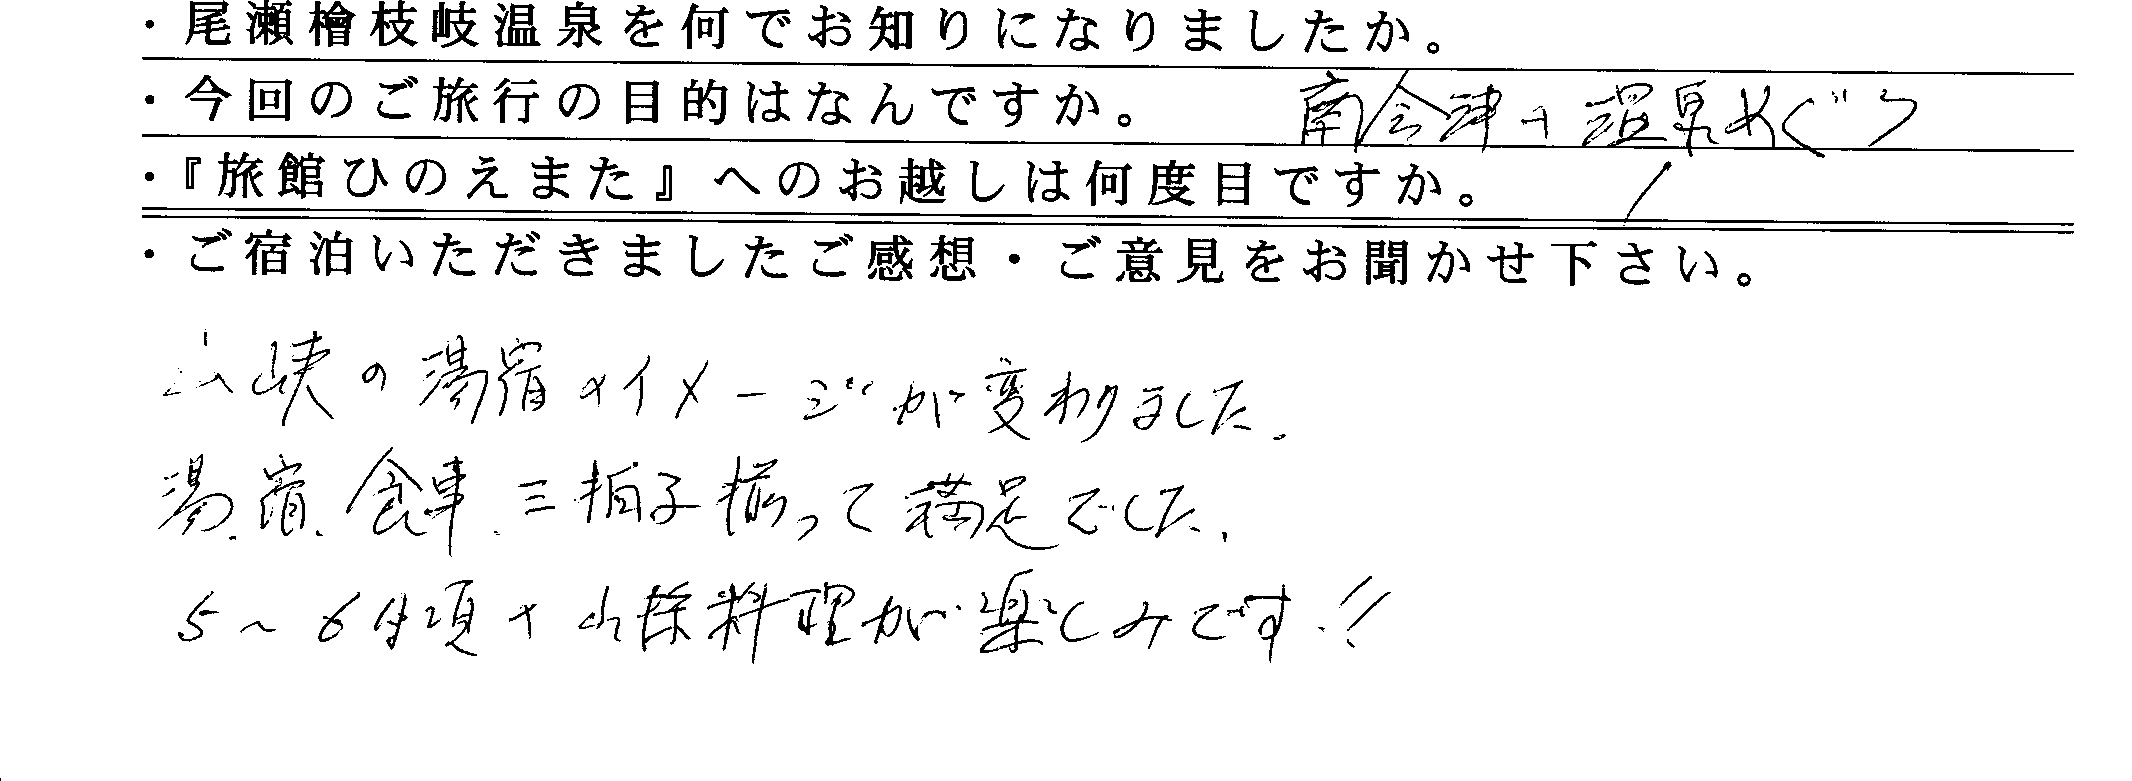 ・尾瀬檜枝岐温泉を何でお知りになりましたか。
・今回のご旅行の目的はなんですか。 南会津の温泉めぐり
・『旅館ひのえまた』へのお越しは何度目ですか。 1
・ご宿泊いただきましたご感想・ご意見をお聞かせ下さい。
山峡の湯宿のイメージが変わりました.
湯、宿、食事、三拍子揃って満足でした.
5〜6月頃の山菜料理が楽しみです!!